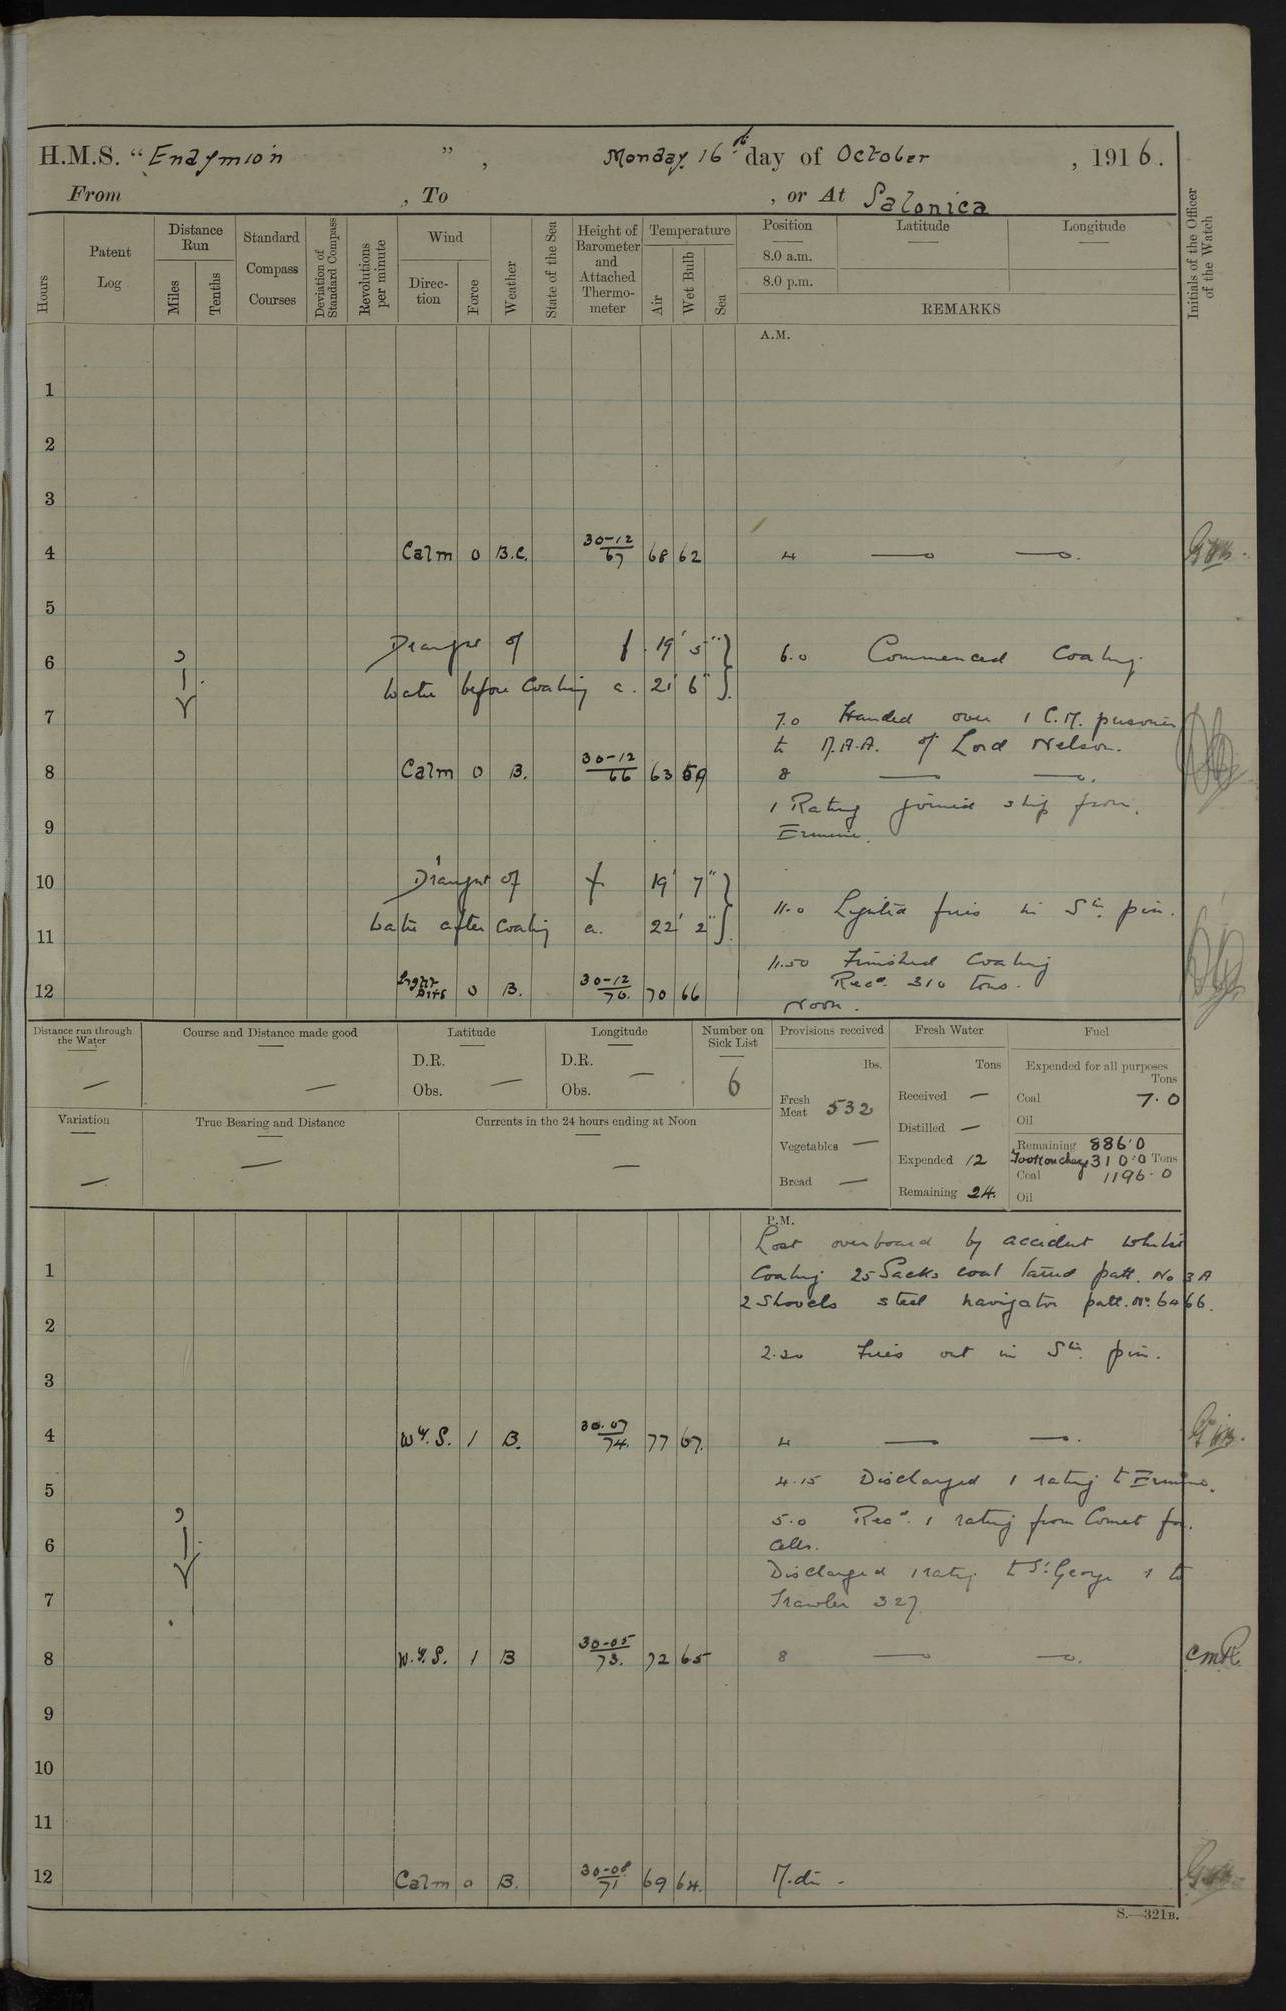 H.M.S. “Endymion ” , Monday 16th day of October , 1916.
From , To , or At Salonica
Hours
Patent Log
Distance Run
Miles
Tenths
Standard Compass Courses
Deviation of Standard Compass
Revolutions per minute
Wind
Direc-tion
Force
Weather
State of the Sea
Height of Barometer and Attached Thermo-meter
Temperature
Air
Wet Bulb
Sea
Position Latitude Longitude
8.0 a.m.
8.0 p.m.
REMARKS
Initials of the Officer of the Watch
A.M.
1
2
3
4 Calm 0 B.C. 30-12 67 68 62 4
5
Draught of f. 19' 5" }
6 6.0 Commenced Coaling
water before Coaling a. 21' 6" }
7 7.0 Handed over 1 C.M. prisoner
to M.A.A. of Lord Nelson.
8 Calm 0 B. 30-12 66 63 59 8
1 Rating joined ship from
9 Ermine.
10 Draught of f 19' 7" }
11.0 Lighted fires in Stm pin.
11 water after coaling a. 22' 2" }
11.50 Finished Coaling
Recd. 310 tons.
12 Light Airs 0 B. 30-12 70. 70 66
Noon.
Distance run through the Water
Course and Distance made good
Latitude
D.R.
Obs.
Longitude
D.R.
Obs.
Number on Sick List
6
Provisions received
lbs.
Fresh Meat 532
Vegetables —
Bread —
Fresh Water
Tons
Received —
Distilled —
Expended 12
Remaining 24.
Fuel
Expended for all purposes
Tons
Coal 7.0
Oil
Remaining 886.0
Took on charge 310.0 Tons
Coal 1196.0
Oil
Variation
True Bearing and Distance
Currents in the 24 hours ending at Noon
P.M.
Lost overboard by accident whilst
1 Coaling 25 Sacks coal tarred patt. No 3A
2 Shovels steel navigator patt. No. 6466.
2
2.20 Fires out in Stm pin.
3
4 Wy. S. 1 B. 30.07 74. 77 67. 4
4.15 Discharged 1 rating to Ermine.
5
5.0 Recd. 1 rating from Comet for
6 cells.
Discharged 1 rating to St. George 1 to
7 Trawler 327
8 W.y.S. 1 B 30-05 73. 72 65 8 CMR
9
10
11
12 Calm 0 B. 30-08 71 69 64. M.dt.
S.—321B.